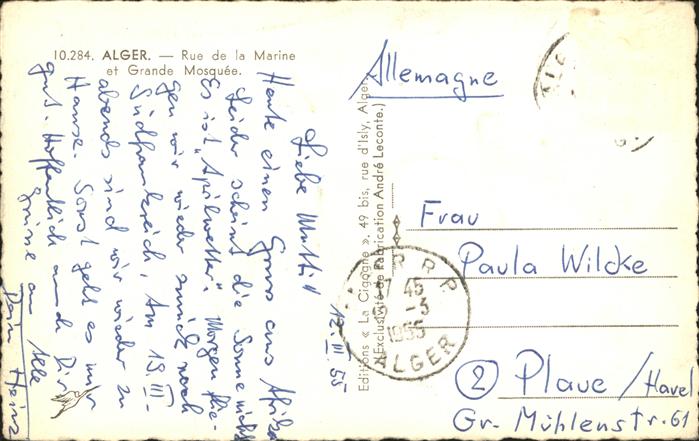 10.284. ALGER. — Rue de la Marine
et Grande Mosquée.
12. III. 55
Liebe Mutti!
Heute einen Gruss aus Afrika
Leider scheint die Sonne nicht
Es ist "Aprilwetter". Morgen flie-
gen wir wieder zurück nach
Südfrankreich. Am 19. III.
abends sind wir wieder zu
Hause. Sonst geht es mir
gut. Hoffentlich auch Dir
Grüsse an Alle
Dein Heinz
Editions « La Cigogne », 49 bis, rue d'Isly, Alger.
(Exclusivité de Fabrication André Leconte.)
Allemagne
R P
45
-3
1955
ALGER
Frau
Paula Wilcke
② Plaue/Havel
Gr. Mühlenstr. 61